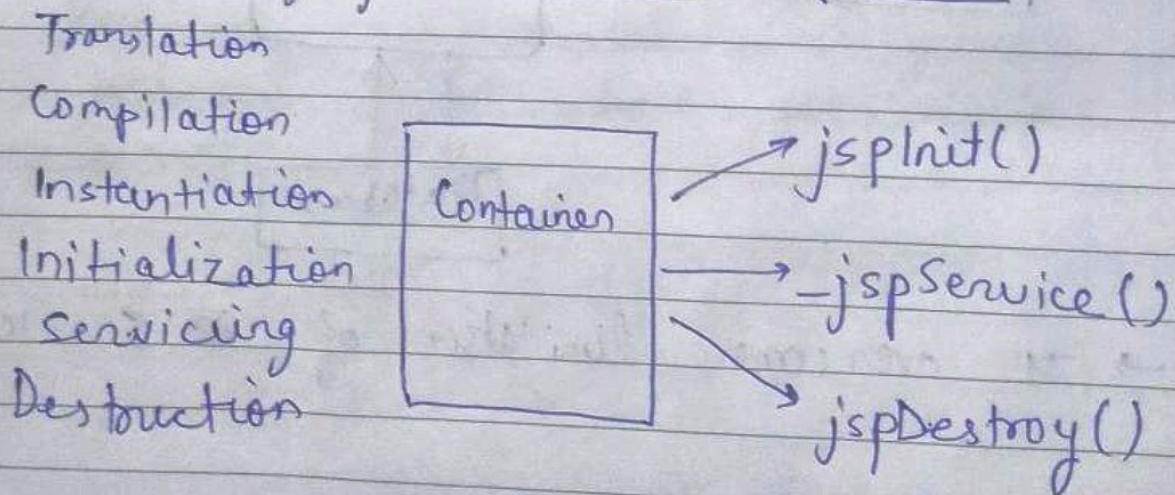 Translation
Compilation
Instantiation
Initialization
Servicing
Destruction
Container
jspInit()
_jspService()
jspDestroy()